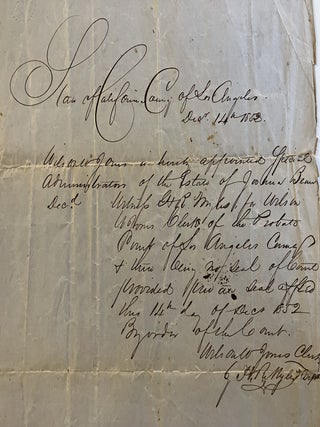 State of California County of Los Angeles
Decr. 14th 1852.
Wilson W Jones is hereby appointed Special
Administrator of the Estate of Joshua Bean
Decd. Witness for Wilson
W Jones Clerk of the Probate
Court of Los Angeles County
& there being no seal of Court
provided private seal affixed
this 14th day of Decr 1852
By order of the Court.
Wilson W Jones Clerk